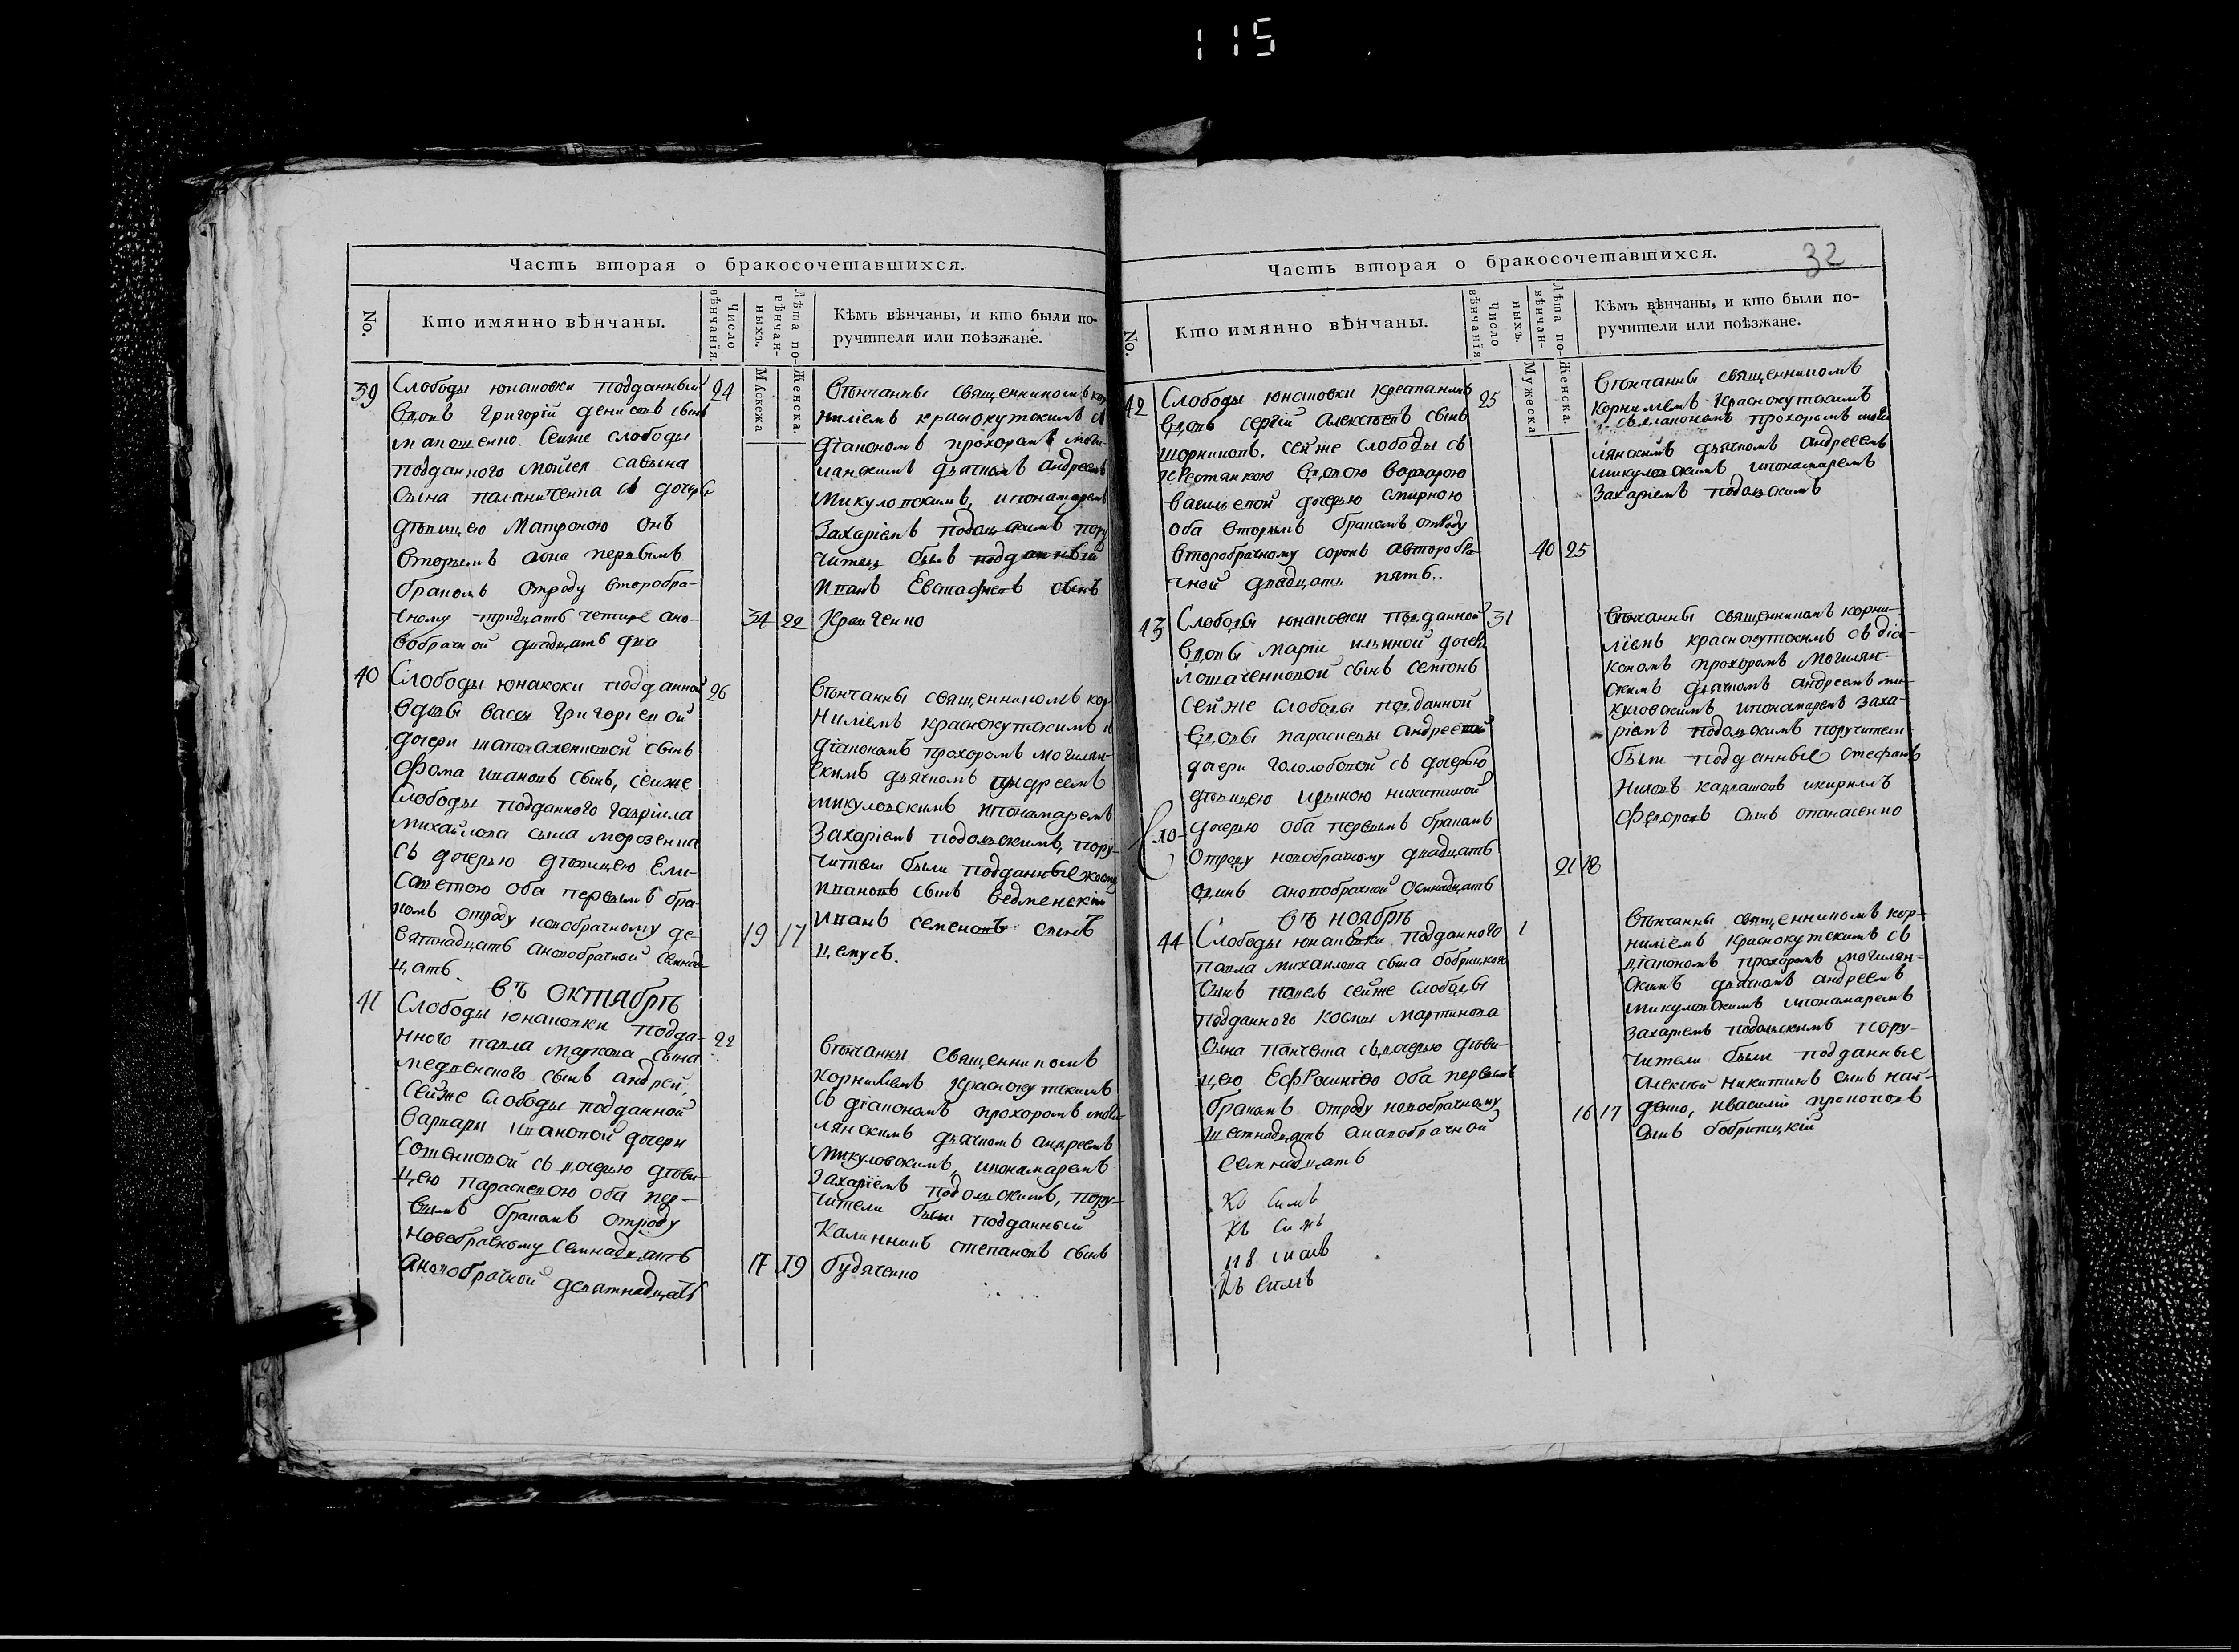 115
Часть вторая о бракосочетавшихся.
No.
Кто имянно вѣнчаны.
Число вѣнчанія.
Лѣта по-
вѣнчан-
ныхъ.
Мужеска
Женска.
Кѣмъ вѣнчаны, и кто были по-
ручители или поѣзжане.
39
Слободы юнаковки подданный
вдовъ григорій денисовъ сынъ
сейже слободы
подданного моисея савина
сына съ дочерью
дѣвицею матроною онъ
вторымъ аона первымъ
бракомъ отроду второбра-
чному тридцать четыре ано-
вобрачной двадцать два
24
34 22
Вѣнчанны священникомъ кор
ниліемъ краснокутскимъ съ
діакономъ прохоромъ моги-
лянскимъ дьячкомъ андреемъ
микуловскимъ, ипонамаремъ
захаріемъ подольскимъ пору
читель былъ подданный
иванъ евстафіевъ сынъ
кравченко
40
Слободы юнакоки подданной
вдовы васы григоріевой
дочери сынъ
фома ивановъ сынъ, сейже
слободы подданного гавріила
михайлова сына морозенка
съ дочерью дѣвицею ели-
саветою оба первымъ бра-
комъ отроду новобрачному де-
вятнадцать ановобрачной семнад
цать
26
19 17
Вѣнчанны священникомъ кор
ниліемъ краснокутскимъ съ
діакономъ прохоромъ могилян-
скимъ дьячкомъ андреемъ
микуловскимъ ипонамаремъ
захаріемъ подольскимъ, пору-
чители были подданные
ивановъ сынъ ведменскій
иванъ семеновъ сынъ
въ октябрѣ
41
Слободы юнаковки подда-
нного павла маркова сына
медвенского сынъ андрей,
сейже слободы подданной
варвары ивановой дочери
сотенковой съ дочерью дѣви-
цею параскевою оба пер-
вымъ бракомъ отроду
новобрачному семнадцать
ановобрачной девятнадцать
22
17 19
Вѣнчанны священникомъ
корниліемъ краснокутскимъ
съ діакономъ прохоромъ моги
лянскимъ дьячкомъ андреемъ
микуловскимъ, ипонамаремъ
захаріемъ подольскимъ, пору-
чители были подданный
калинникъ степановъ сынъ
будяченко
Часть вторая о бракосочетавшихся.
32
No.
Кто имянно вѣнчаны.
Число вѣнчанія.
Лѣта по-
вѣнчан-
ныхъ.
Мужеска
Женска.
Кѣмъ вѣнчаны, и кто были по-
ручители или поѣзжане.
42
Слободы юнаковки крестянинъ
вдовъ сергій алексѣевъ сынъ
шорниковъ. сейже слободы съ
крестянкою вдовою варварою
васильевой дочерью смирною
оба вторымъ бракомъ отроду
второбрачному сорокъ авторобра-
чной двадцать пять.
25
40 25
Вѣнчанны священникомъ
корниліемъ краснокутскимъ
съ діакономъ прохоромъ моги
лянскимъ дьячкомъ андреемъ
микуловскимъ ипонамаремъ
захаріемъ подольскимъ
43
Слободы юнаковки подданной
вдовы маріи ильиной дочери
сынъ семіонъ
сейже слободы подданной
вдовы параскевы андреевой
дочери гололобовой съ дочерью
дѣвицею ириною никитиной
дочерью оба первымъ бракомъ
отроду новобрачному двадцать
одинъ ановобрачной осмнадцать
31
21 18
Вѣнчанны священникомъ корни-
ліемъ краснокутскимъ съ діа-
кономъ прохоромъ могилян-
скимъ дьячкомъ андреемъ ми-
куловскимъ ипонамаремъ заха-
ріемъ подольскимъ поручители
были подданные стефанъ
икирилъ
федоровъ сынъ опанасенко
10
въ ноябрѣ
44
Слободы юнаковки подданного
павла михаилова сына бобрицкого
сынъ павелъ сейже слободы
подданного космы мартинова
сына панченка съ дочерью дѣви-
цею ефросиніею оба первымъ
бракомъ отроду новобрачному
шестнадцать ановобрачной
семнадцать
1
16 17
Вѣнчанны священникомъ кор-
ниліемъ краснокутскимъ съ
діакономъ прохоромъ могилян-
скимъ дьячкомъ андреемъ
микуловскимъ ипонамаремъ
захаріемъ подольскимъ пору-
чители были подданные
алексѣй никитинъ сынъ най-
денко, ивасилій прокоповъ
сынъ бобрицкій
къ симъ
къ симъ
къ симъ